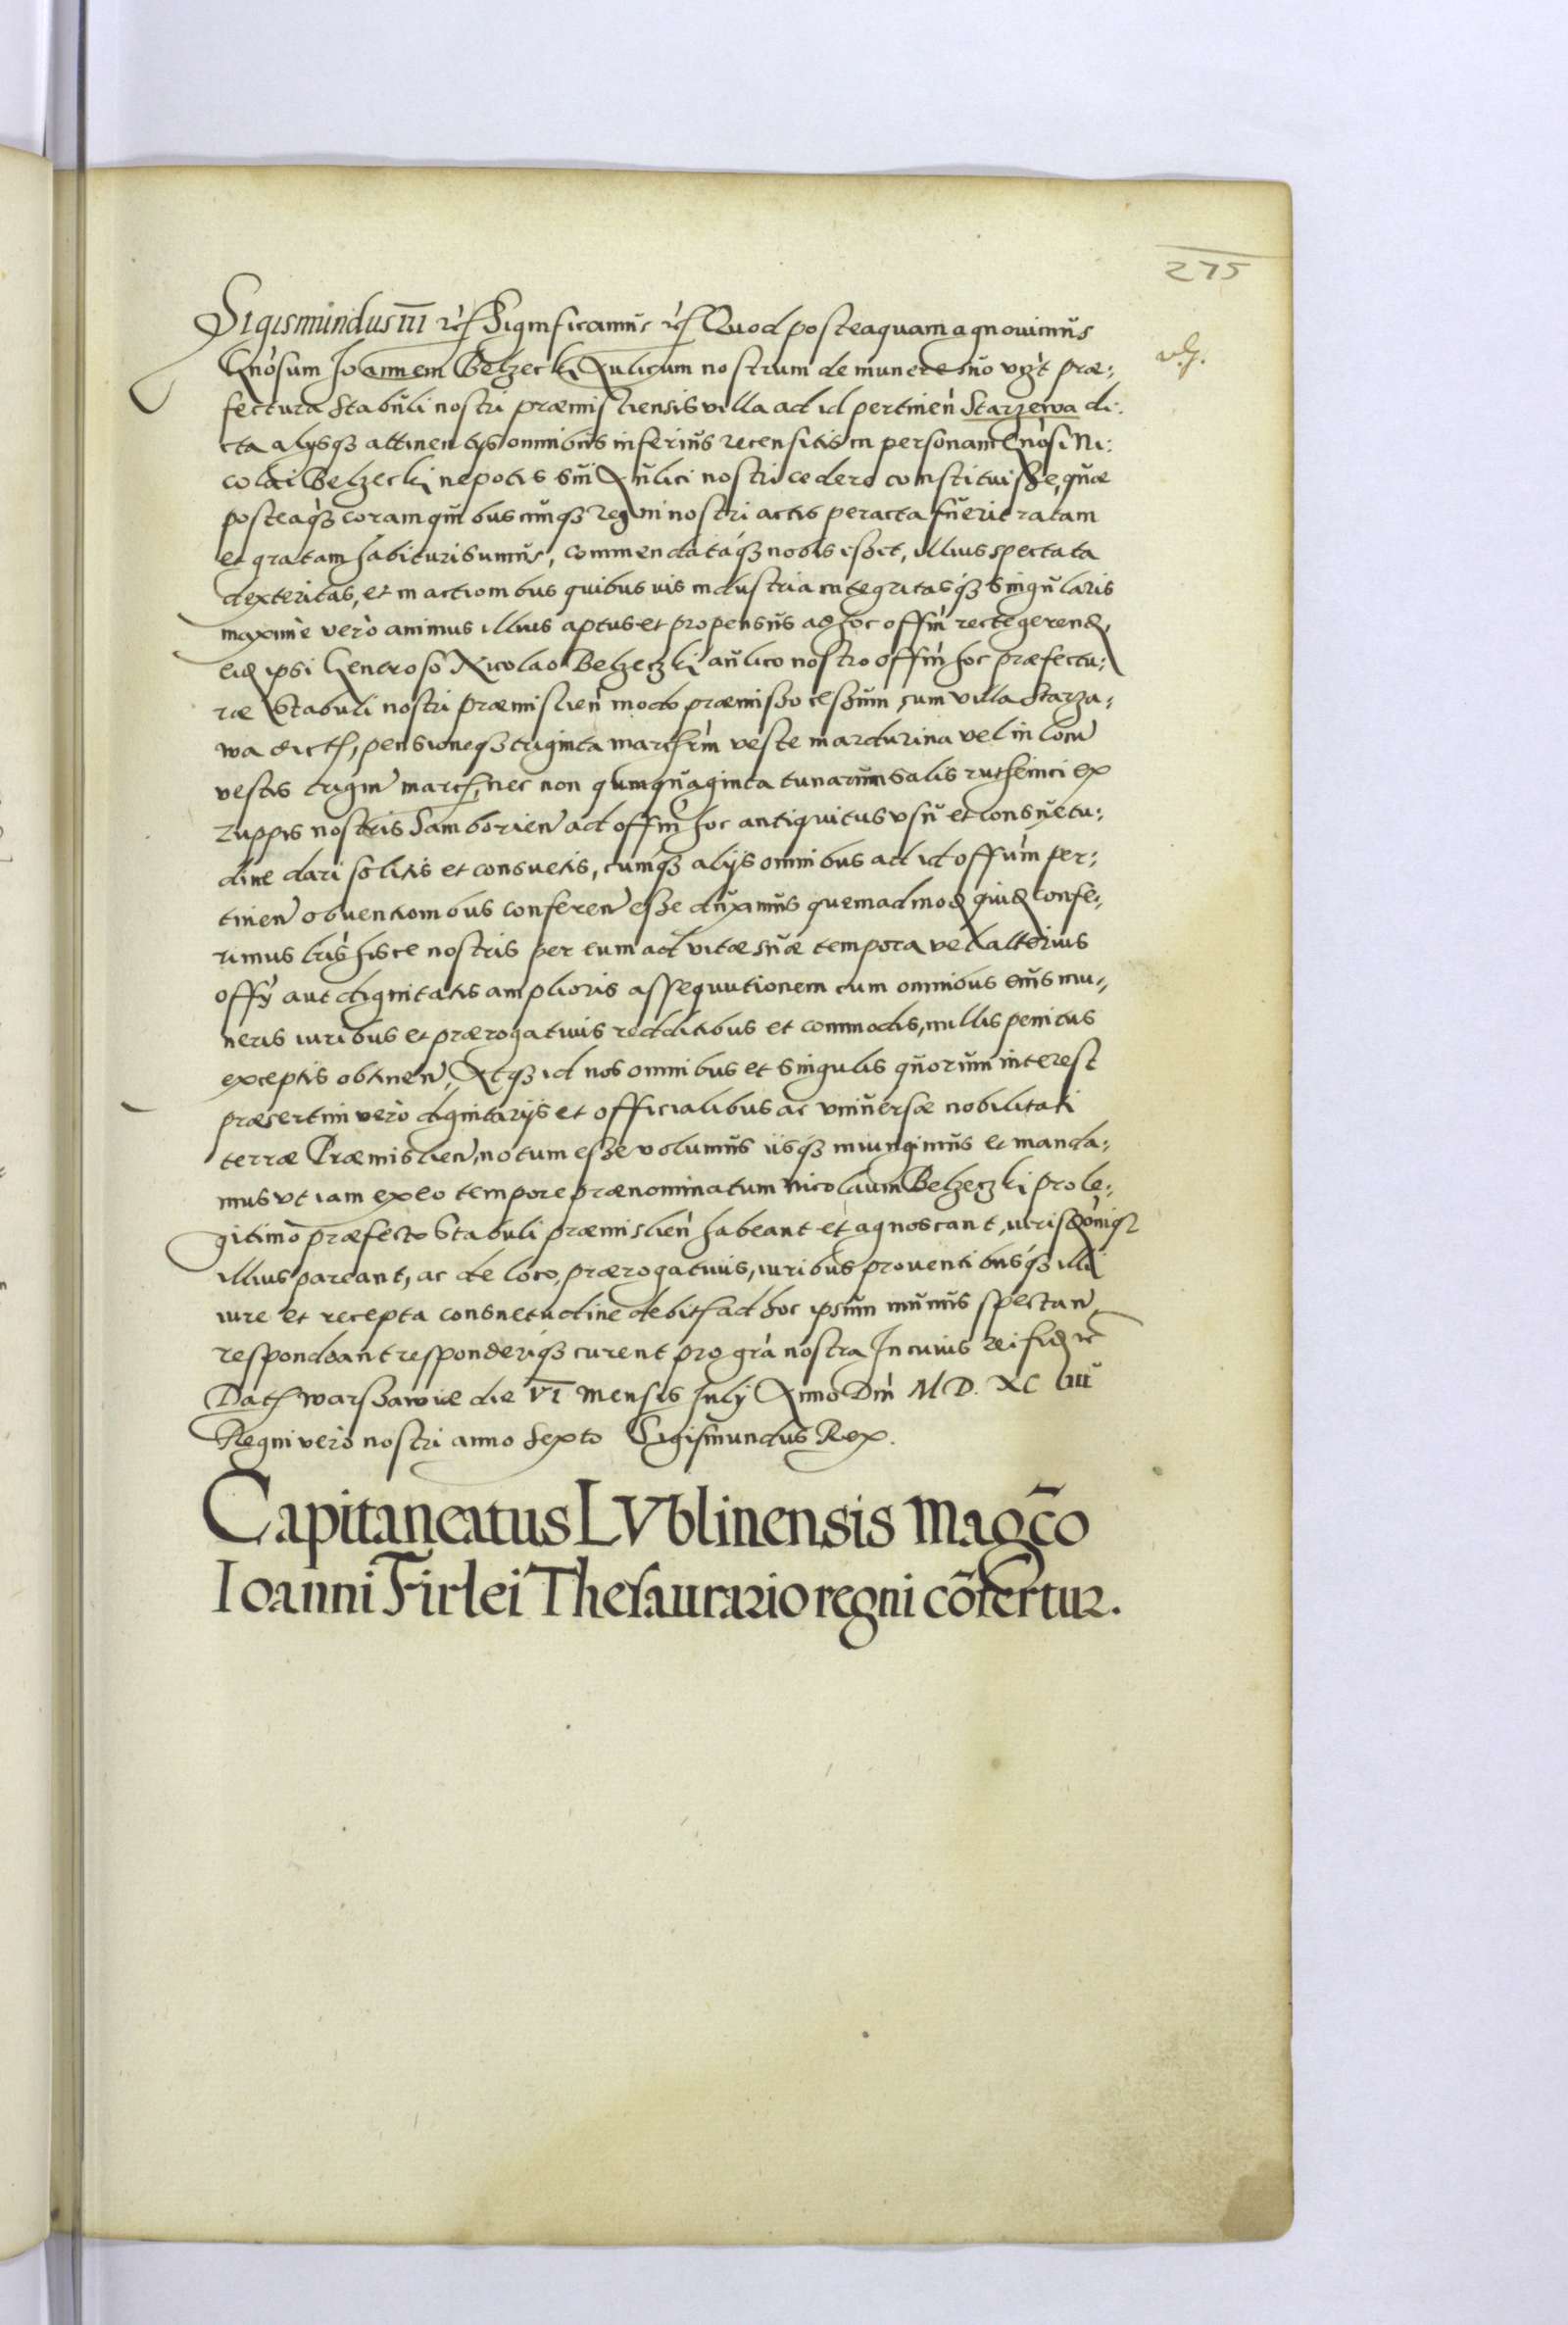 275
Sigismundus III etc Significamus etc Quod posteaquam agnovimus
Gnosum Joannem Belzecki Aulicum nostrum de munere suo vzt præ:
fectura stabuli nostri præmisliensis villa ad id pertinen Starzewa di:
cta alijsq attinentijs omnibus inferius recensitis in personam Gnosi Ni:
colai Belzecki nepotis sui Aulici nostri cedere constituisse, quæ
posteaq coram quibuscunq regni nostri actis peracta fuerit ratam
et gratam habituri sumus, commendataq nobis esset, illius spectata
dexteritas, et in actionibus quibusuis industria integritasq singularis
maxime verò animus illius aptus et propensus ad hoc offm recte gerend,
eid ipsi Generoso Nicolao Belzeczki aulico nostro offm hoc præfectu:
ræ Stabuli nostri præmislien modo præmisso cessum cum villa Starza:
wa dict, pensioneq triginta marcarm veste mardurina vel in locu
vestis trigin marc, nec non quinquaginta tunarum salis ruthenici ex
zuppis nostris Samborien ad offm hoc antiquitus vsu et consuetu:
dine dari solitis et consuetis, cumq alijs omnibus ad id offum per:
tinen obuentionibus conferen esse duximus quemadmod quid confe:
rimus lris hisce nostris per eum ad vitæ suæ tempora vel alterius
offy aut dignitatis amplioris assequutionem cum omnibus eius mu:
neris iuribus et prærogatiuis redditibus et commodis, nullis penitus
exceptis obtinen, Atq id nos omnibus et singulis quorum interest
præsertim verò dignitarijs et officialibus ac vniuersæ nobilitati
terræ Præmislien, notum esse volumus iisq iniungimus et manda:
mus vt iam ex eo tempore prænominatum Nicolaum Belzeczki pro le:
gitimo præfecto Stabuli præmislien habeant et agnoscant,
illius pareant, ac de loco, prærogatiuis, iuribus prouentibusq illi
iure et recepta consuetudine debit ad hoc ipsum munus spectan
respondeant responderiq curent pro grà nostra In cuius rei fid etc
Dat warszawiæ die VI Mensis July Anno Dm M D. XC IIII
Regni verò nostri anno sexto Sigismundus Rex.
Capitaneatus LVblinensis Magco
Ioanni Firlei Thesaurario regni cōfertur.